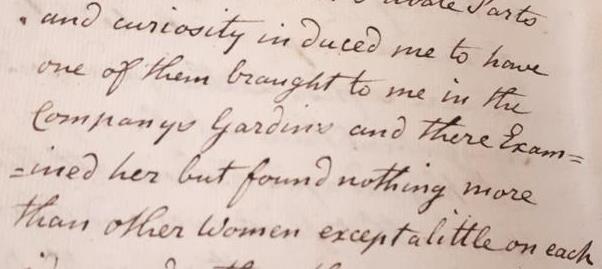 Private Parts
. and curiosity induced me to have
one of them braught to me in the
Companys Gardins and there Exam=
=ined her but found nothing more
than other Women except a little on each